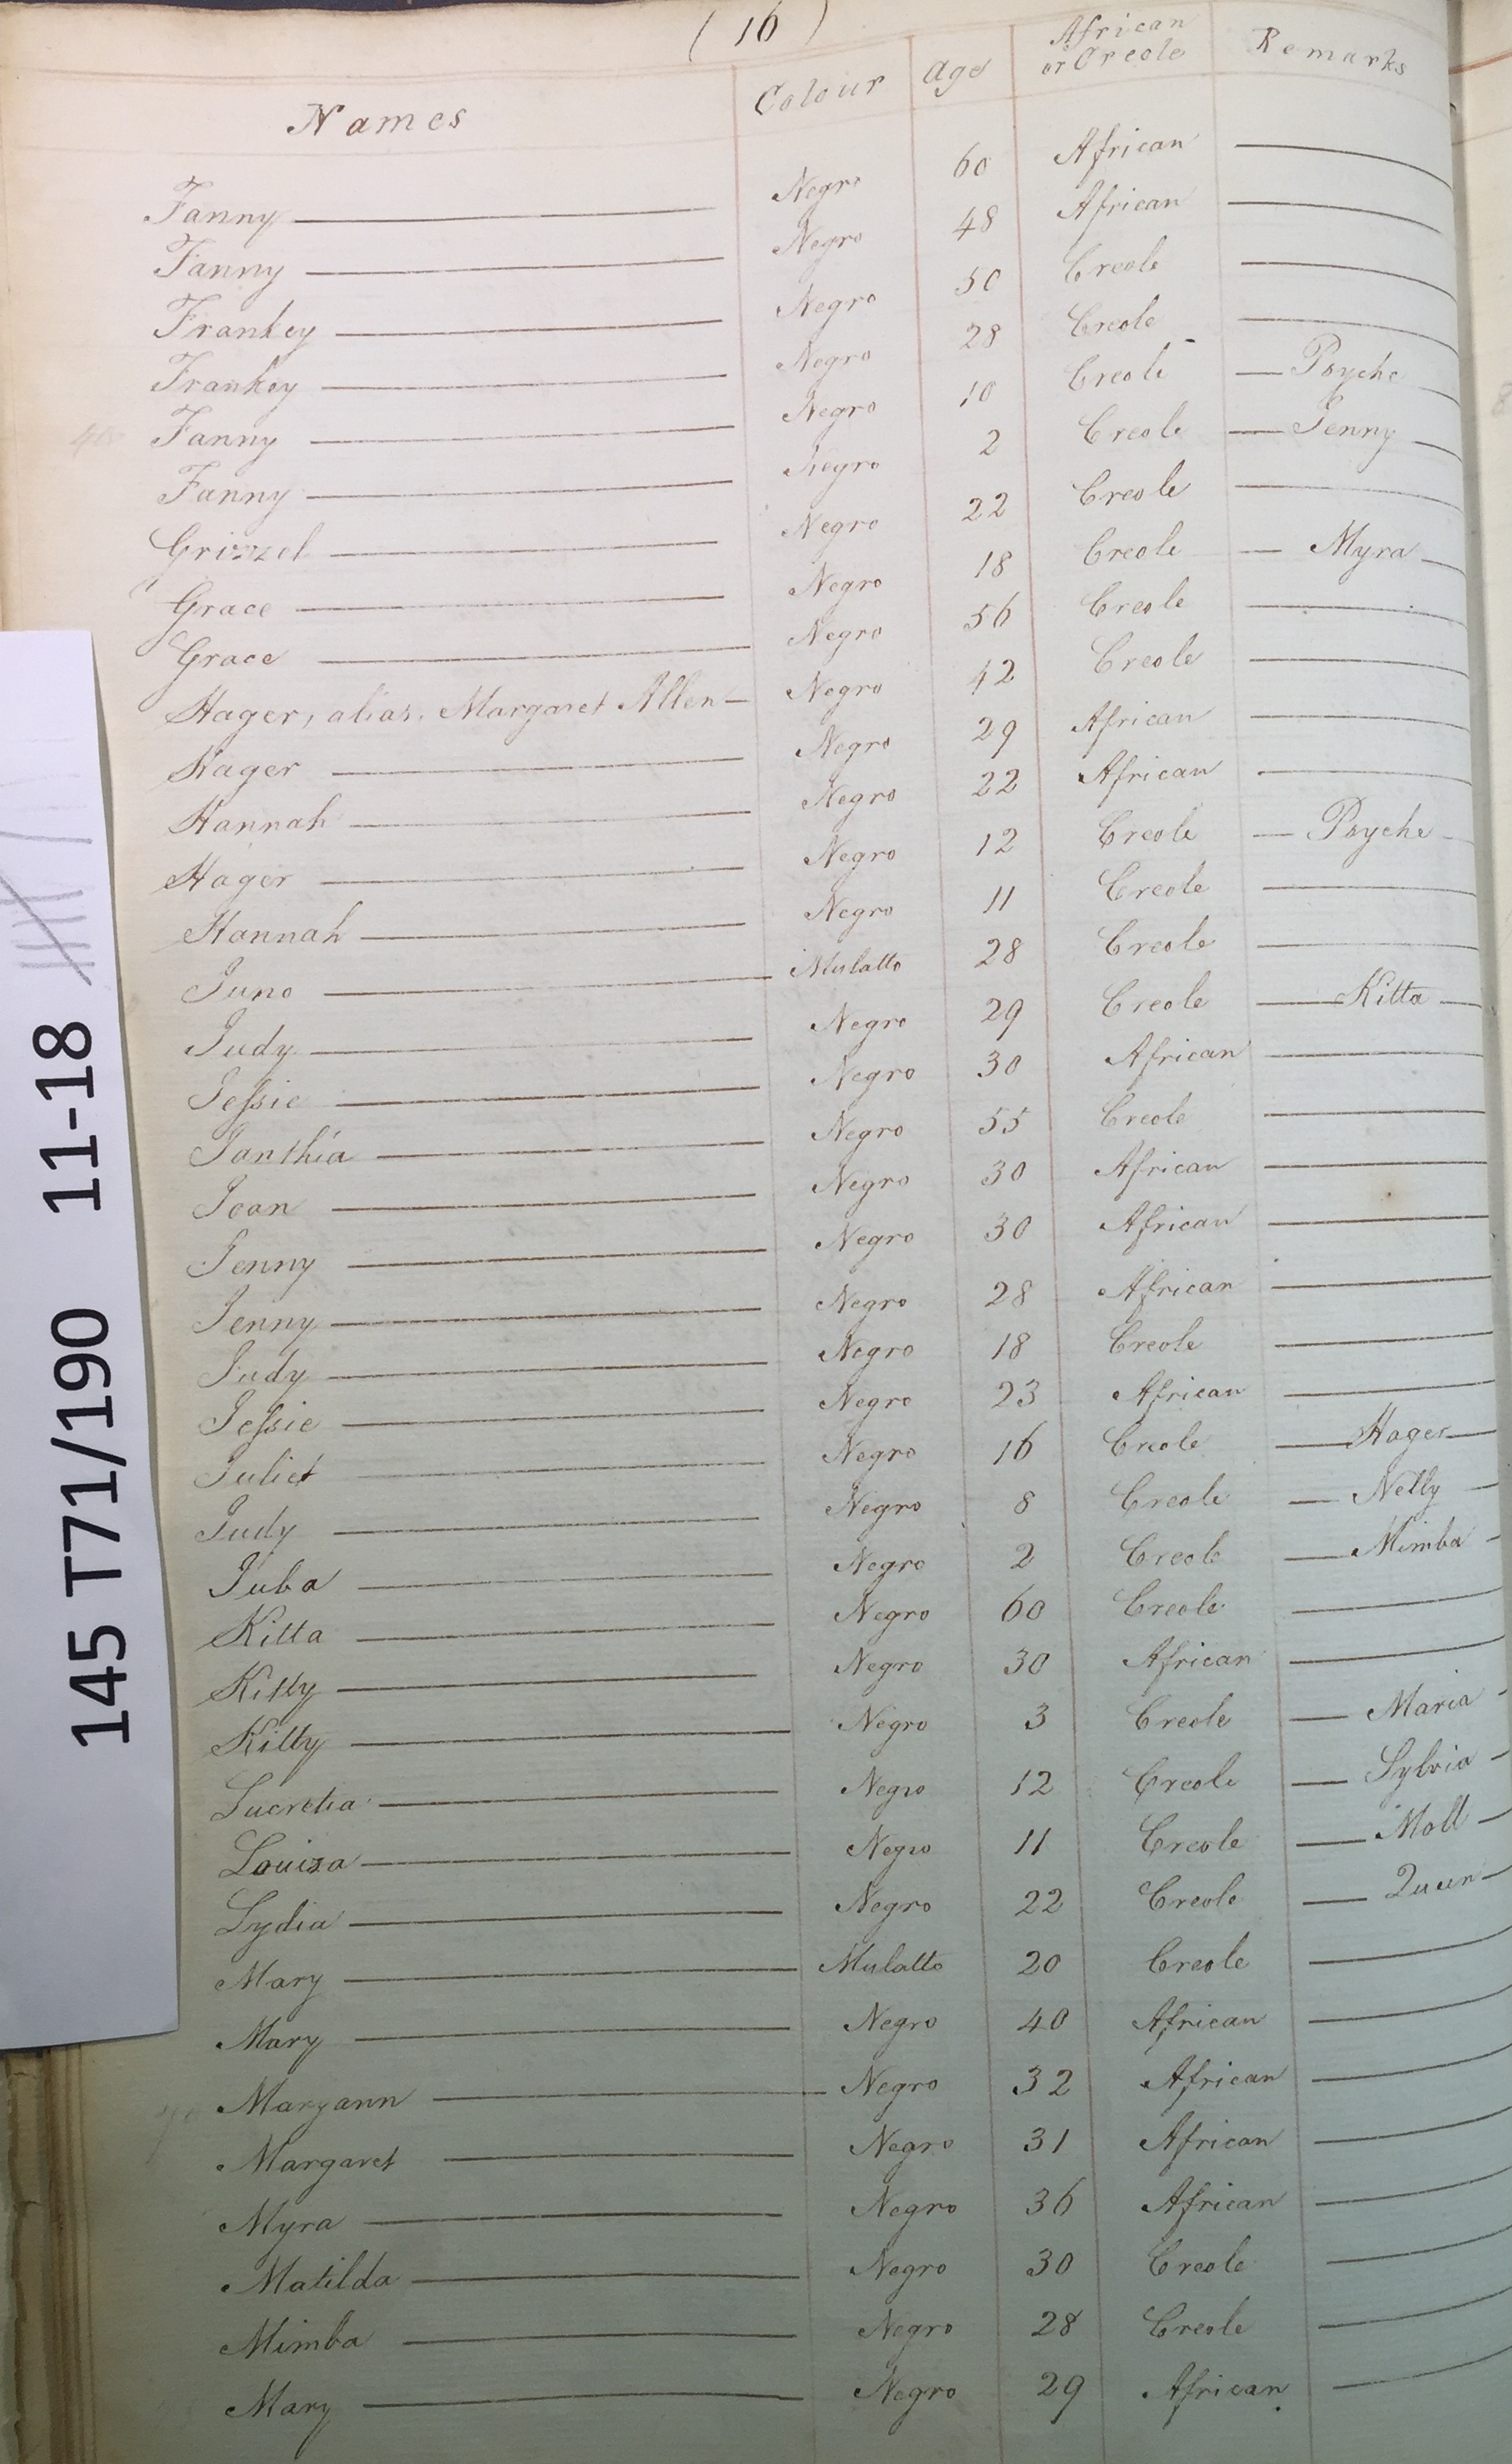 ( 16 )
Names Colour Age African or Creole Remarks
Fanny Negro 60 African
Fanny Negro 48 African
Frankey Negro 50 Creole
Frankey Negro 28 Creole
Fanny Negro 10 Creole Psyche
Fanny Negro 2 Creole Jenny
Grizzel Negro 22 Creole
Grace Negro 18 Creole Myra
Grace Negro 56 Creole
Hager, alias. Margaret Allen Negro 42 Creole
Hager Negro 29 African
Hannah Negro 22 African
Hager Negro 12 Creole Psyche
Hannah Negro 11 Creole
Juno Mulatto 28 Creole
Judy Negro 29 Creole Kitta
Jessie Negro 30 African
Ianthia Negro 55 Creole
Jean Negro 30 African
Jenny Negro 30 African
Jenny Negro 28 African
Judy Negro 18 Creole
Jessie Negro 23 African
Juliet Negro 16 Creole Hager
Judy Negro 8 Creole Nelly
Juba Negro 2 Creole Mimba
Kitta Negro 60 Creole
Kitty Negro 30 African
Kitty Negro 3 Creole Maria
Lucretia Negro 12 Creole Sylvia
Louiza Negro 11 Creole Moll
Lydia Negro 22 Creole Queen
Mary Mulatto 20 Creole
Mary Negro 40 African
Maryann Negro 32 African
Margaret Negro 31 African
Myra Negro 36 African
Matilda Negro 30 Creole
Mimba Negro 28 Creole
Mary Negro 29 African
145 T71/190 11-18